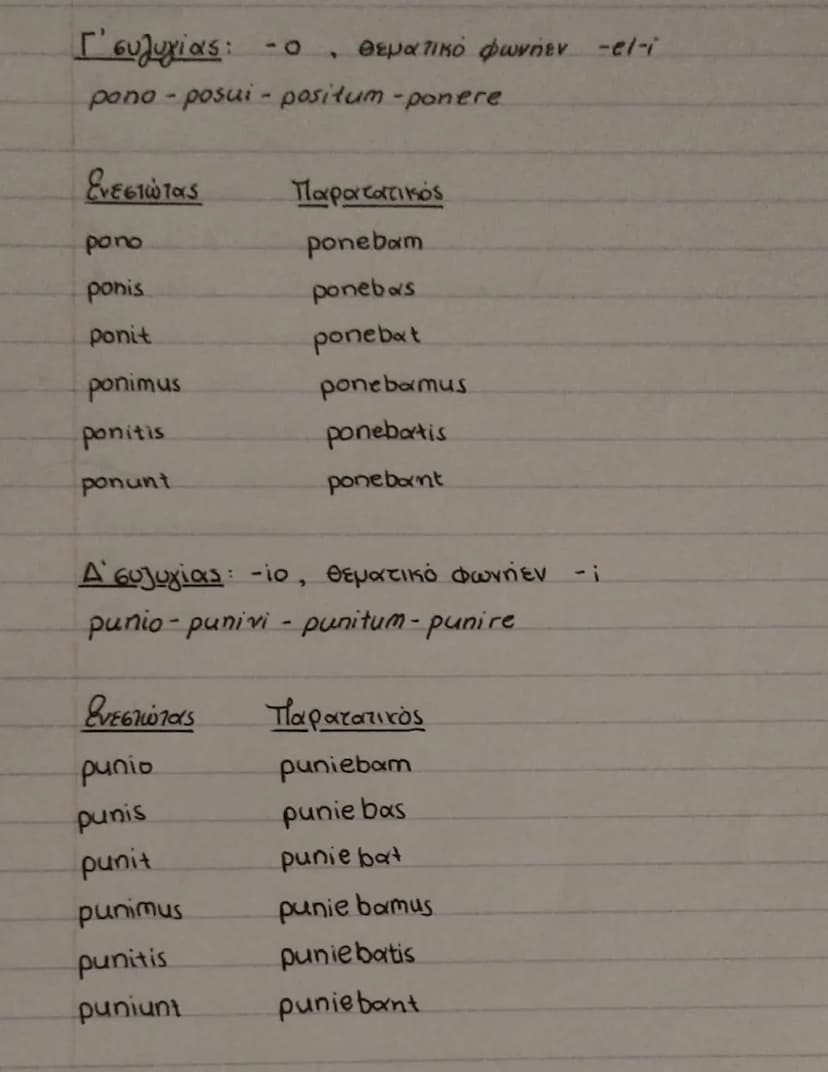 Γ' συζυγίας: -ο , θεματικό φωνήεν -e/-i
pono - posui - positum - ponere
Ενεστώτας Παρατατικός
pono ponebam
ponis ponebas
ponit ponebat
ponimus ponebamus
ponitis ponebatis
ponunt ponebant
Δ' συζυγίας: -io, θεματικό φωνήεν -i
punio - punivi - punitum - punire
Ενεστώτας Παρατατικός
punio puniebam
punis puniebas
punit puniebat
punimus puniebamus
punitis puniebatis
puniunt puniebant